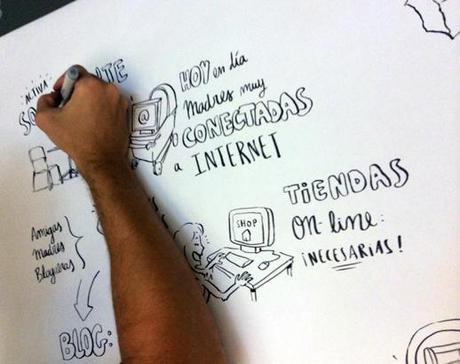 ACTIVA
HOY en día
Madres muy
CONECTADAS
a INTERNET
@
TIENDAS
On line:
¡NECESARIAS!
SHOP
Amigas
Madres
Blogueras
BLOG: